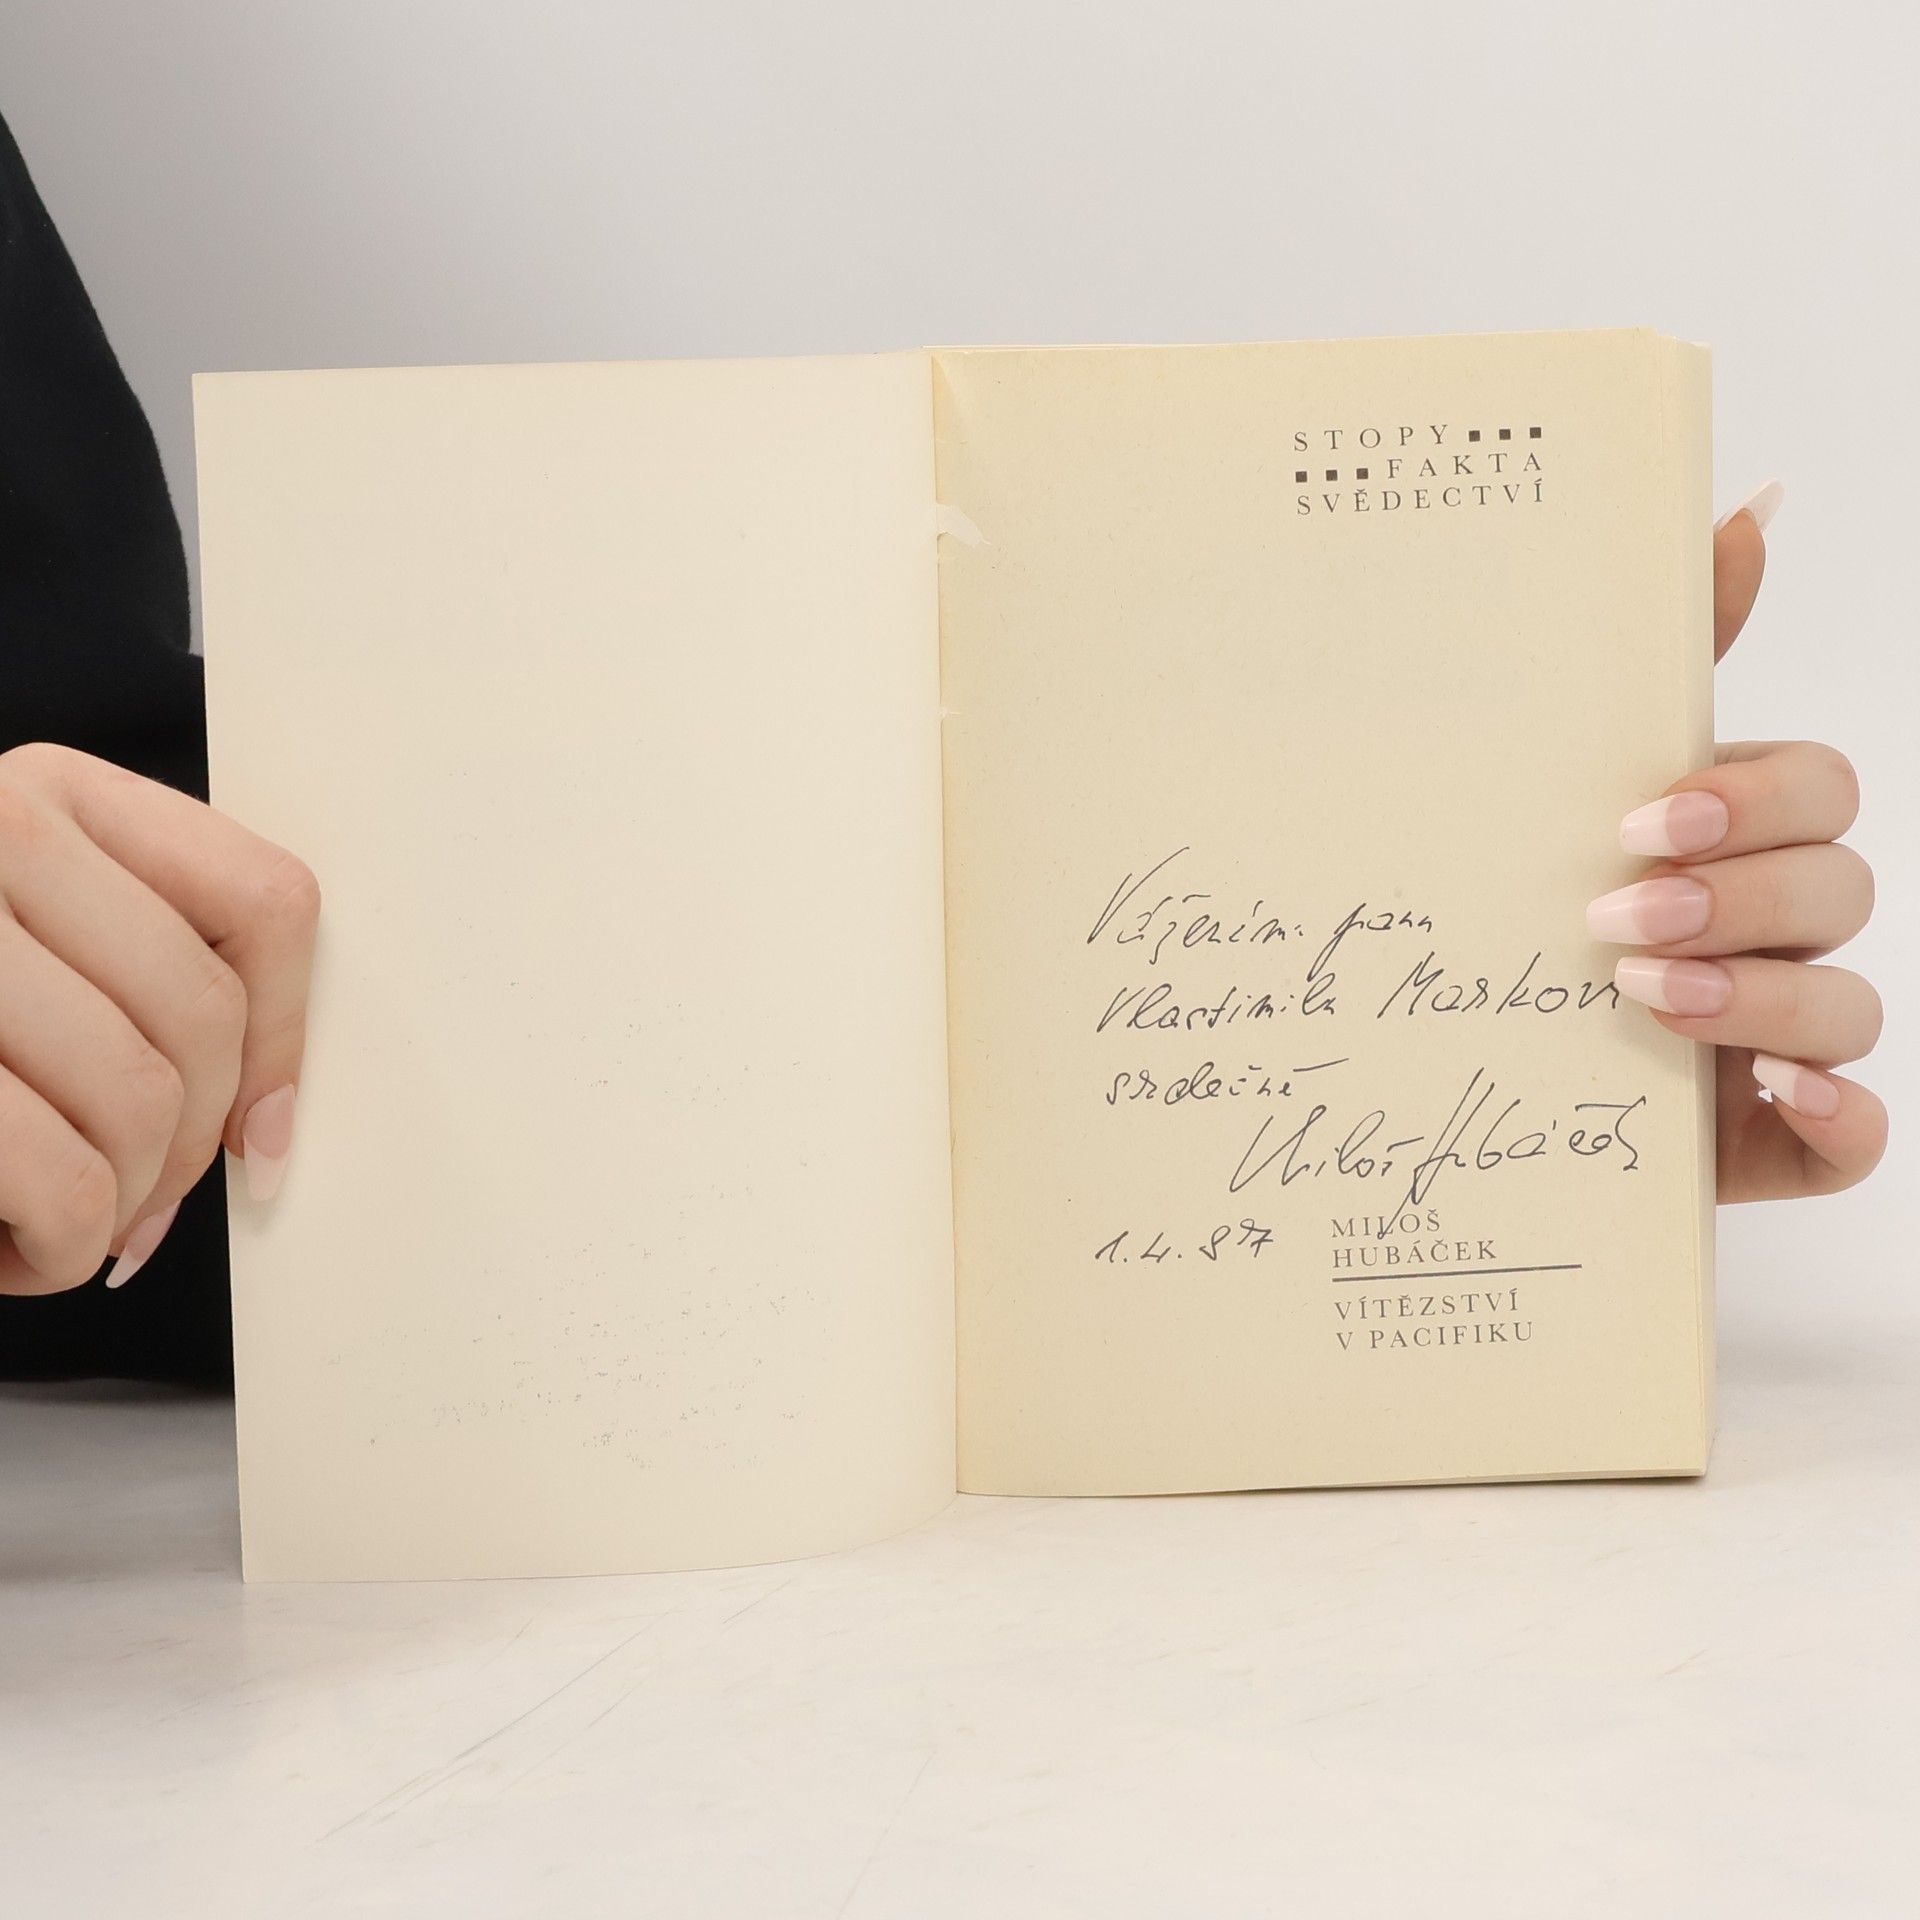 STOPY ■ ■ ■
■ ■ ■ FAKTA
SVĚDECTVÍ
Váženému panu
Vlastimilu Markovi
srdečně
Miloš Hubáček
1.4.87
MILOŠ
HUBÁČEK
VÍTĚZSTVÍ
V PACIFIKU